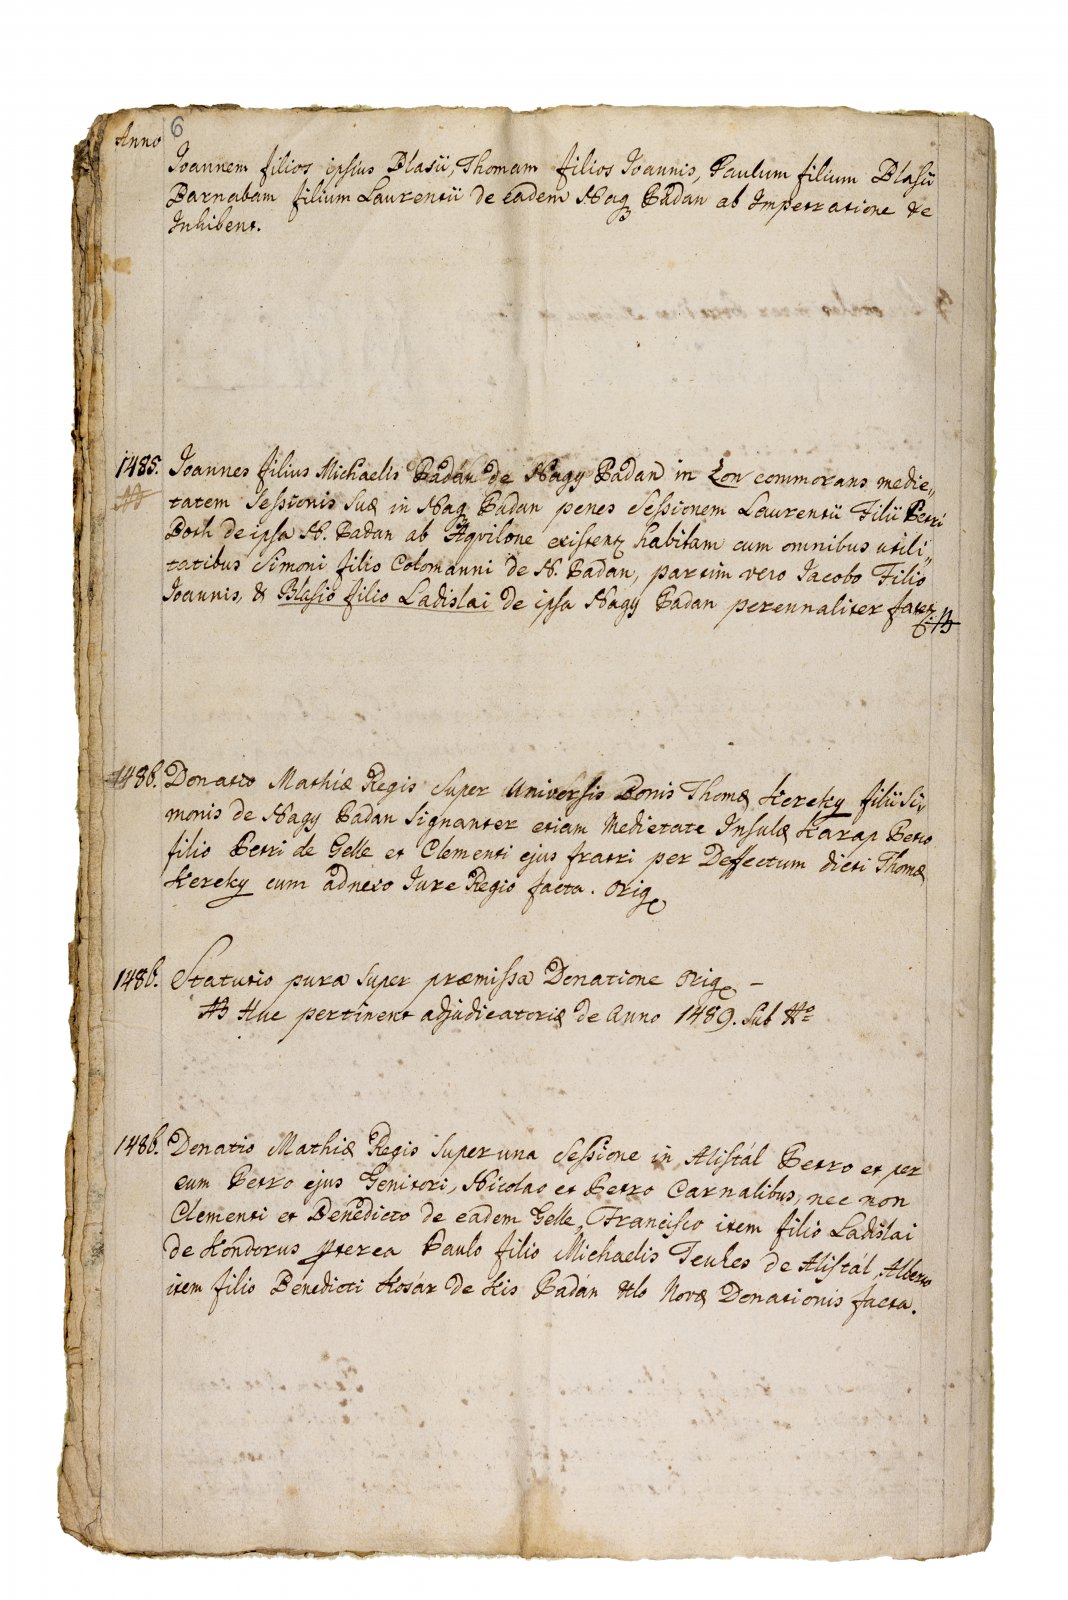 Anno 6
Joannem filios ipsius Blasii, Thomam filios Joannis, Paulum filium Blasii
Barnabam filium Laurentii de eadem Nag Padan ab Impetratione &c
Inhibent.
1485. Joannes filius Michaelis Padán de Nagy Padan in Lon commorans medie„
NB tatem Sessionis Suæ in Nag Padan penes Sessionem Laurentii Filii Petri
Both de ipsa N. Padan ab Aquilone existen habitam cum omnibus utili„
tatibus Simoni filio Colomanni de N. Padan, partim vero Jacobo Filio
Joannis, & Blasio filio Ladislai de ipsa Nagy Padan perennaliter faten
1486. Donatio Mathiæ Regis Super Universis Bonis Thomæ Kereky filii Si„
monis de Nagy Padan Signanter etiam Medietate Insulæ Karap Petro
filio Petri de Gelle et Clementi ejus fratri per Deffectum dicti Thomæ
Kereky cum adnexo Jure Regio facta. Orig
1486. Statutio pura Super præmissa Donatione Orig –
NB Huc pertinent adjudicatoriæ de Anno 1489. Sub No
1486. Donatio Mathiæ Regis Super una Sessione in Alistál Petro et per
eum Petro ejus Genitori, Nicolao et Petro Carnalibus, nec non
Clementi et Benedicto de eadem Gelle, Francisco item filio Ladislai
de Kondorus pterea Paulo filio Michaelis Teukes de Alistál, Alberto
item filio Benedicti Kosár de Kis Padán tlo Novæ Donationis facta.